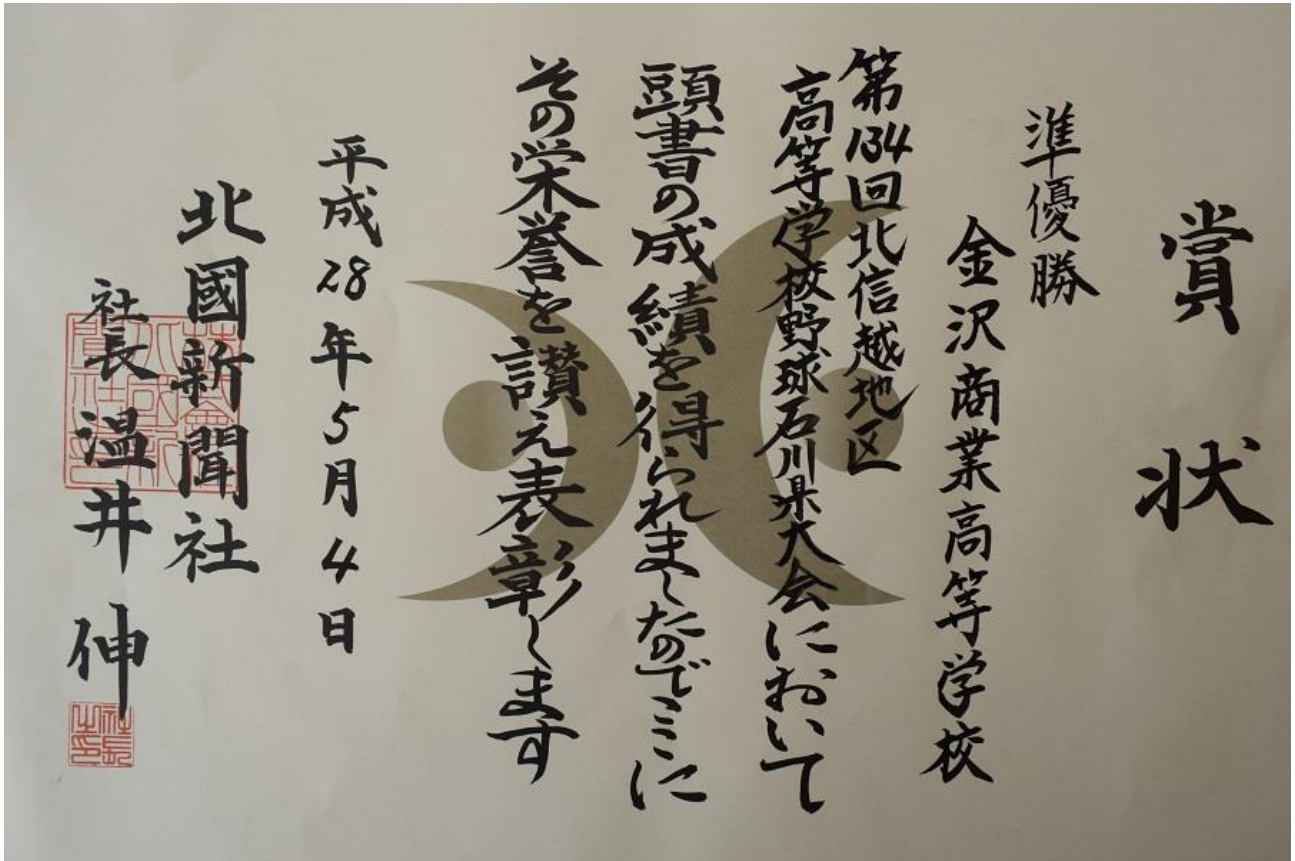 賞状
準優勝
金沢商業高等学校
第134回北信越地区
高等学校野球石川県大会において
頭書の成績を得られましたのでここに
その栄誉を讃え表彰します
平成28年5月4日
北國新聞社
社長 温井 伸